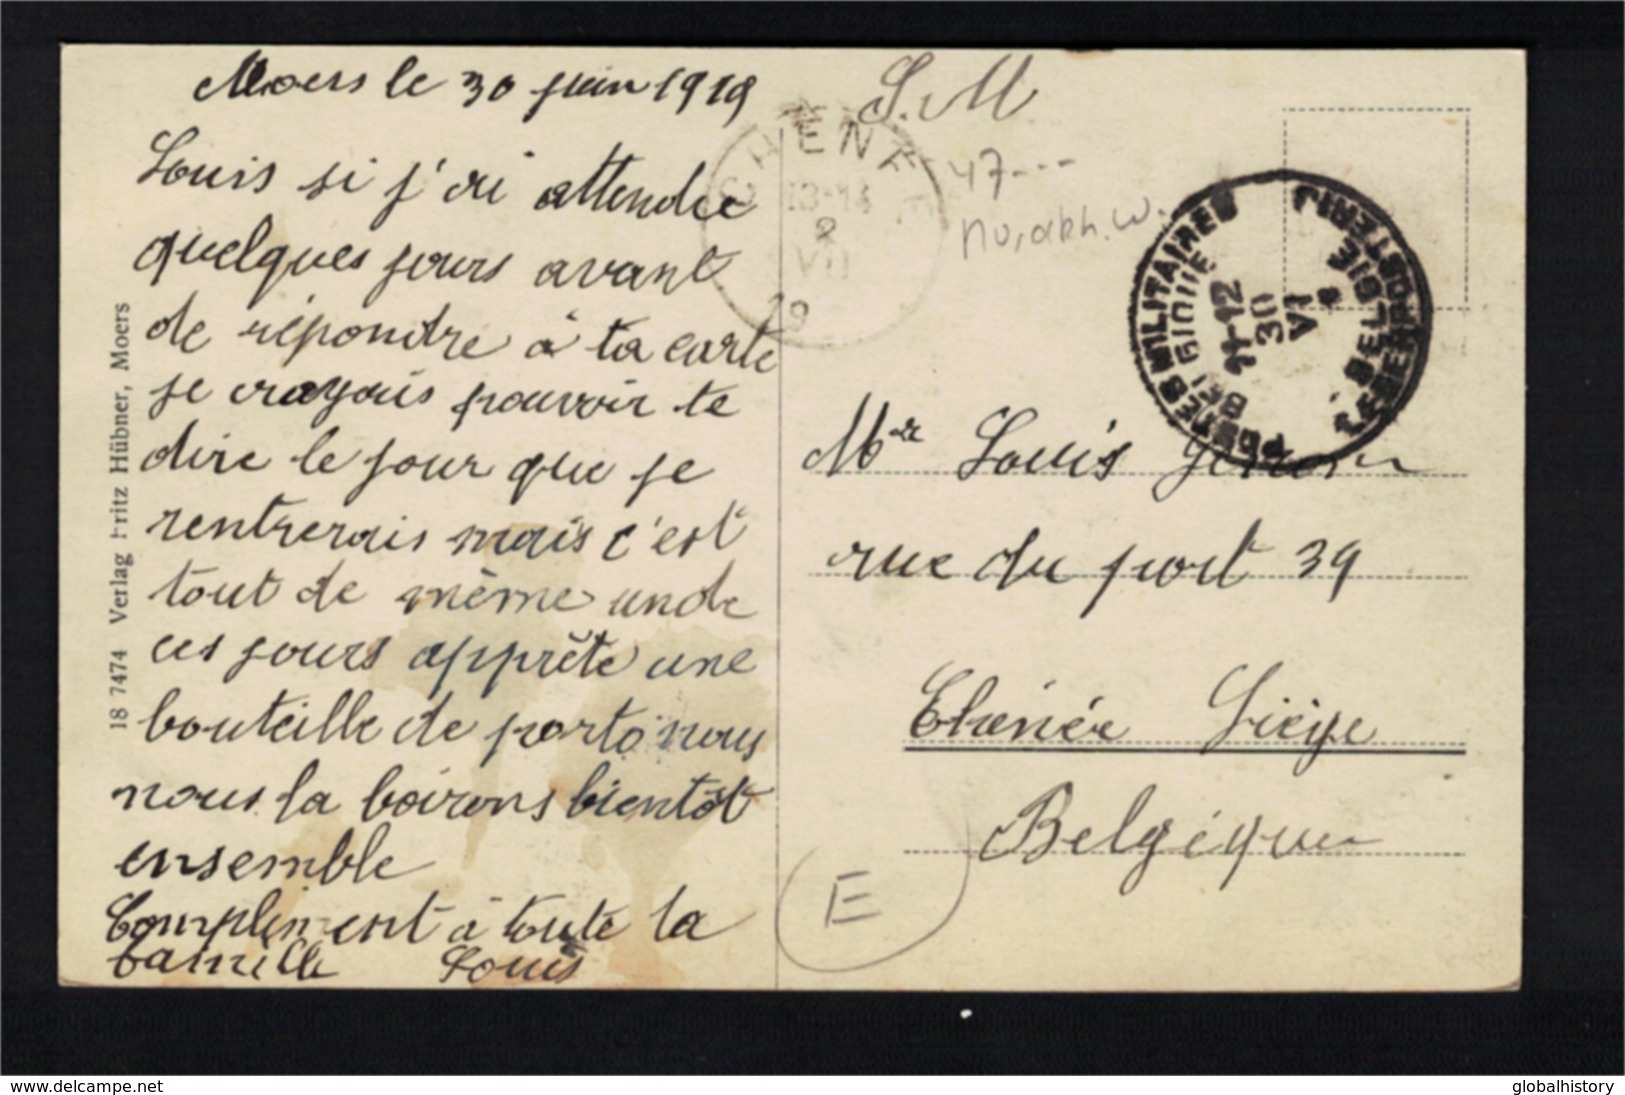 Moers le 30 juin 1919
Louis si j'ai attendue
quelques jours avant
de répondre à ta carte
je croyais pouvoir te
dire le jour que je
rentrerais mais c'est
tout de même un de
ces jours apprête une
bouteille de porto nous
nous la boirons bientôt
ensemble
Compliment à toute la
famille Louis
18 7474 Verlag Fritz Hübner, Moers
S.M
CHENEE
13-14
2
VII
19
47---
POSTES MILITAIRES
BELGIQUE
11-12
30
VI
BELGIE
LEGERPOSTERIJ
Mr Louis
rue du port 39
Chênée Liège
Belgique
E
www.delcampe.net
globalhistory